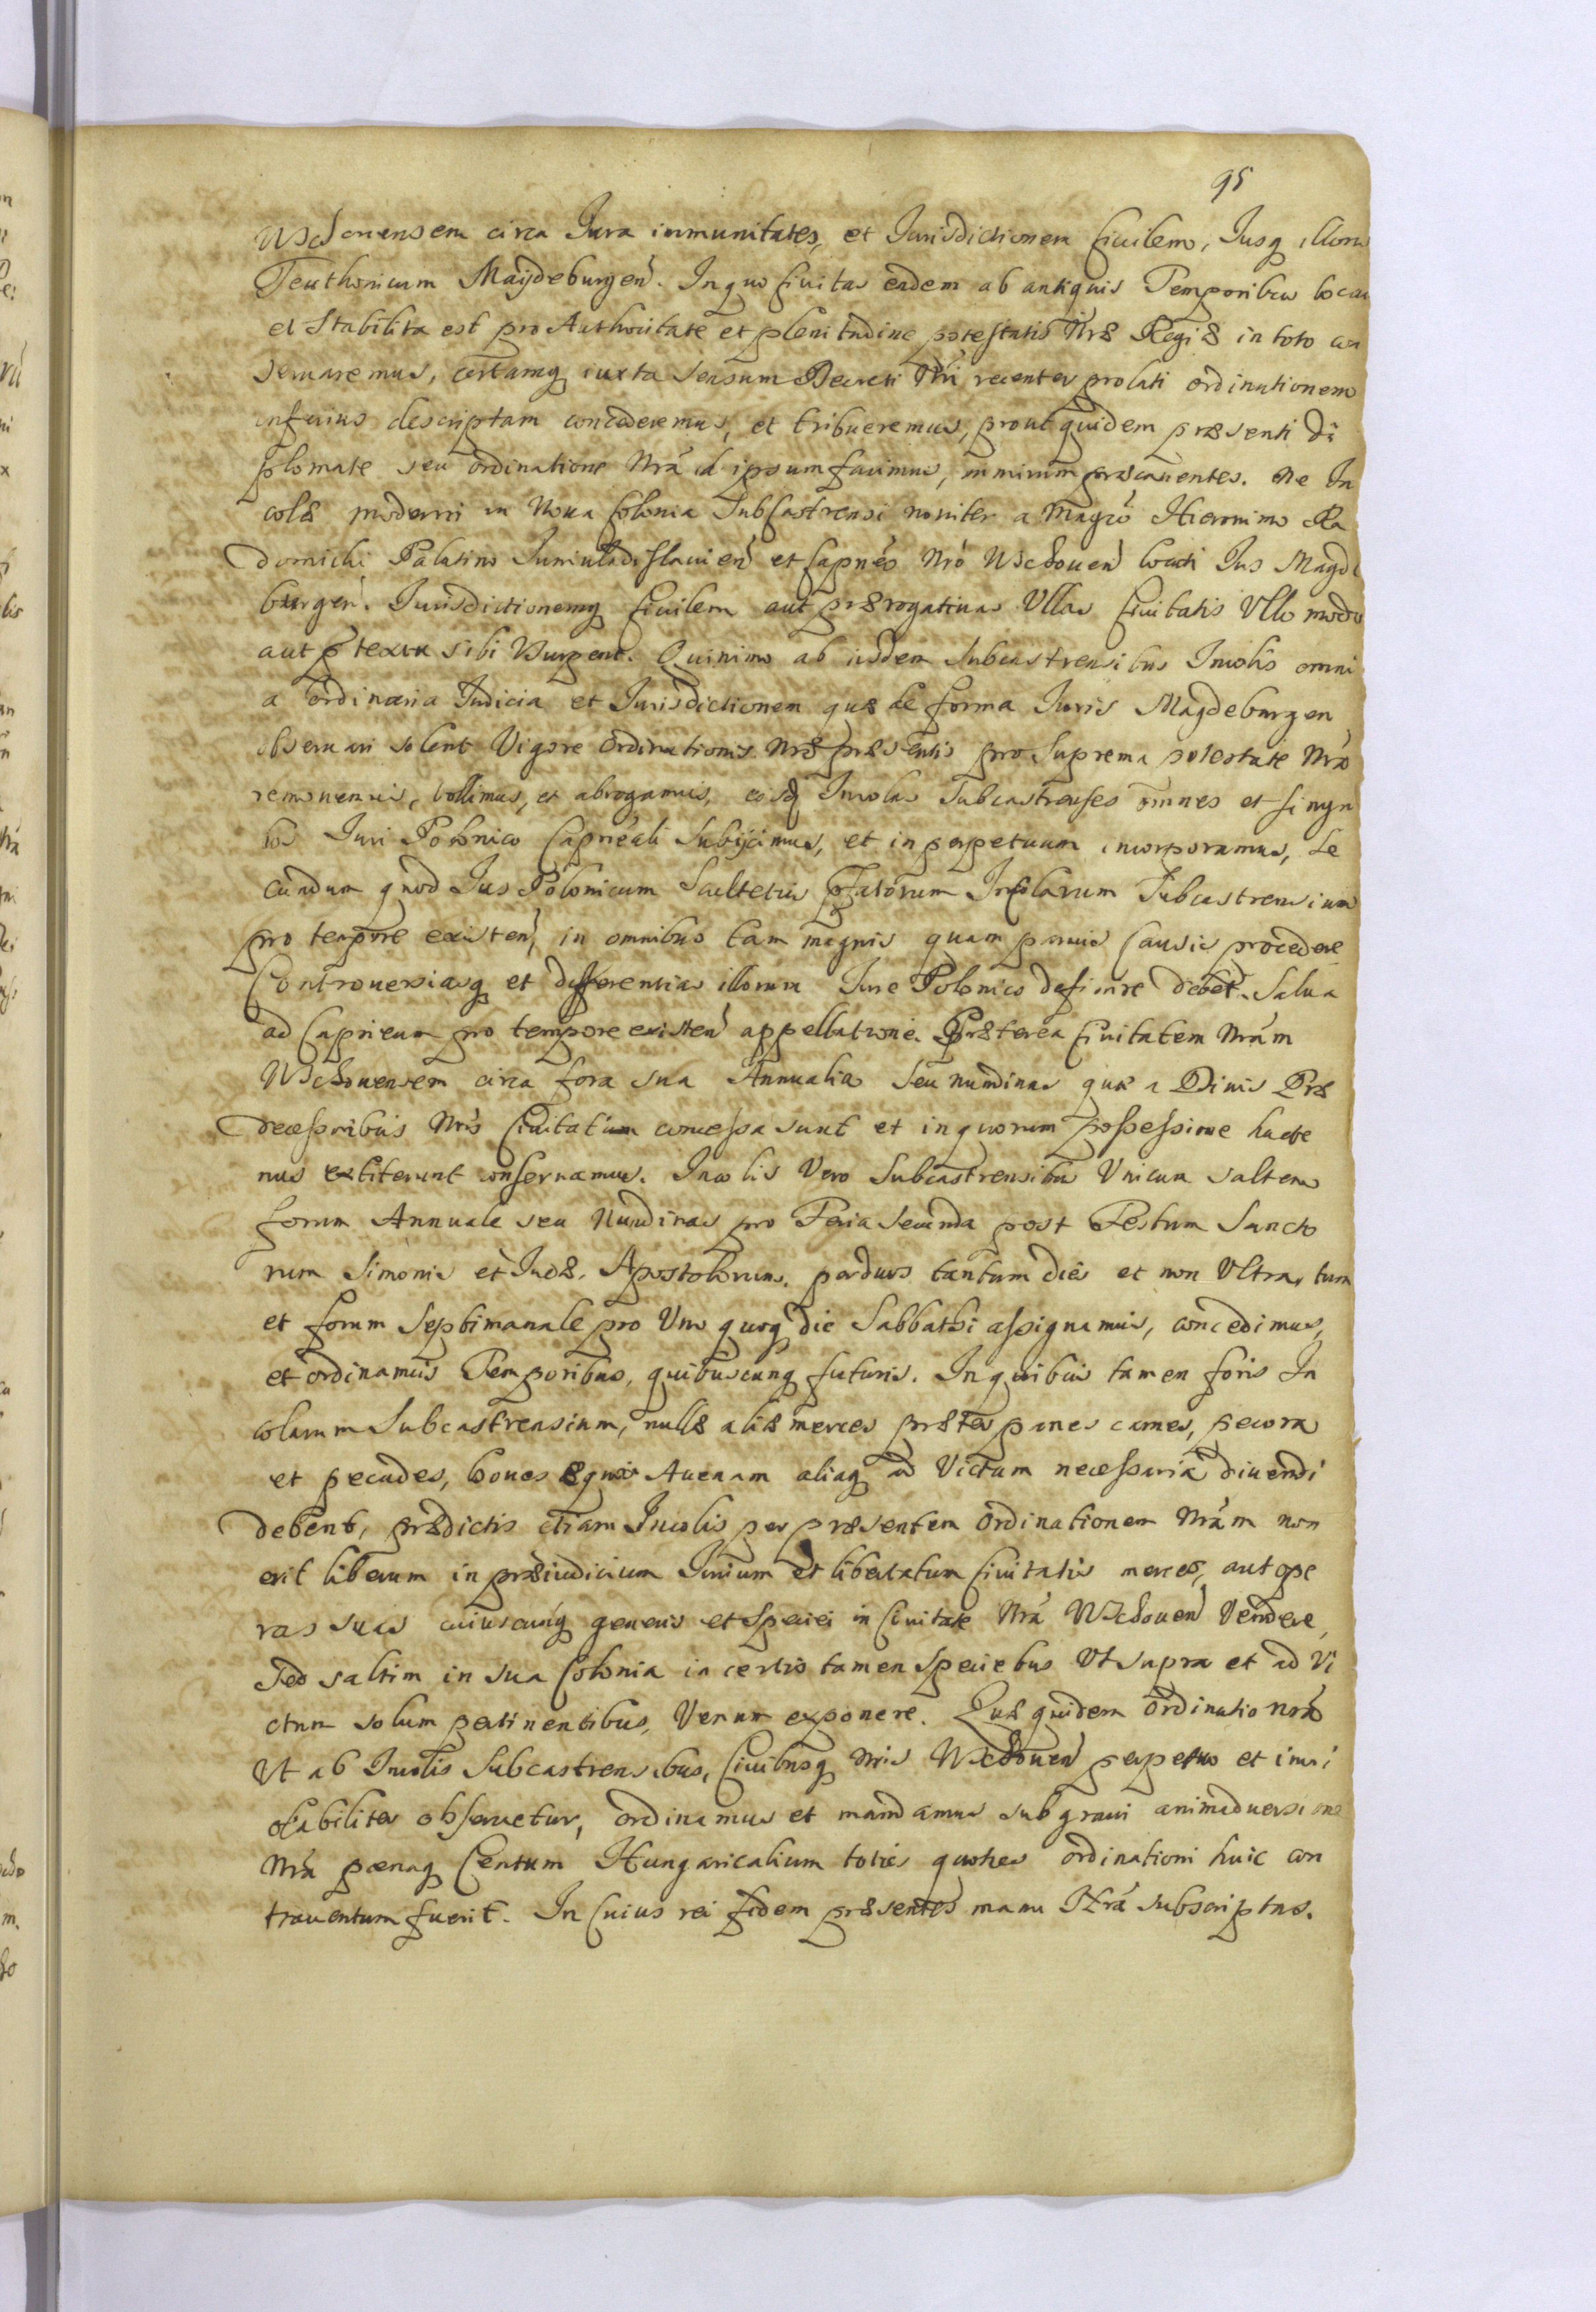 95
Wschouensem circa Iura immunitates, et Iurisdictionem Ciuilem, Iusq illorum
Teuthonicum Maydeburgen. In quo Ciuitas eadem ab antiquis Temporibus locat
et stabilita est pro Authoritate et plenitudine potestatis Nræ Regiæ in toto con
seruaremus, certamq iuxta sensum Decreti Nri recenter prolati ordinationem
inferius descriptam concederemus, et tribueremus, prout quidem præsenti di
plomate seu ordinatione Nrá id ipsum facimus, in primis præcauentes. Ne In
colæ moderni in Noua Colonia Subcastrensi nouiter a Magco Hieronimo Ra
domicki Palatino Iuniuladislauien et Capneo Nro Wschouen locati Ius Magde
burgen. Iurisdictionemq Ciuilem aut prærogatiuas Vllas Ciuitatis Vllo modo
aut ptextu sibi Vsurpent. Quinimo ab iisdem Subcastrensibus Incolis omni
a ordinaria Iudicia et Iurisdictionem quæ de forma Iuris Magdeburgen
obseruari solent Vigore ordinationis Nræ præsentis pro Suprema potestate Nra
remouemus, tollimus, et abrogamus, eosq Incolas Subcastrenses omnes et singu
los Iuri Polonico Capneali Subijcimus, et in perpetuum incorporamus, Se
cundum quod Ius Polonicum Scultetus pfatorum Incolarum Subcastrensium
pro tempore existen, in omnibus tam magnis quam paruis Causis procedere
Controuersiasq et differentias illorum Iure Polonico definire debet. Salua
ad Capneum pro tempore existen appellatione. Præterea Ciuitatem Nrám
Wschouensem circa fora sua Annualia seu nundinas quæ a Diuis Præ
decessoribus Nris Ciuitatum concessa sunt et in quorum possessione hacte
nus extiterunt conseruamus. Incolis Vero Subcastrensibus Vnicum saltem
forum Annuale seu Nundinas pro Feria secunda post Festum Sancto
rum Simonis et Iudæ. Apostolorum. per duos tantum dies et non Vltra, tum
et forum septimanale pro Vno quoq die Sabbathi assignamus, concedimus,
et ordinamus Temporibus, quibuscunq futuris. In quibus tamen foris In
colarum Subcastrensium, nullæ aliæ merces præter panes carnes, pecora
et pecudes, boues equos Auenam aliaq ad Victum necessaria diuendi
debent, prædictis etiam Incolis per præsentem ordinationem Nrám non
erit liberum in præiudicium Iurium et libertatum Ciuitatis merces, aut ope
ras suas cuiuscunq generis et Speciei in Ciuitate Nrá Wschouen Vendere,
Sed saltim in sua Colonia in certis tamen speciebus Vt supra et ad Vi
ctum solum pertinentibus, Venum exponere. Quæ quidem ordinatio nra
Vt ab Incolis Subcastrensibus, Ciuibusq Nris Wschouen perpetuo et inui
olabiliter obseruetur, ordinamus et mandamus sub graui animaduersione
Nrá pœnaq Centum Hungaricalium toties quoties ordinationi huic con
trauentum fuerit. In Cuius rei fidem præsentes manu Nrá subscriptas.